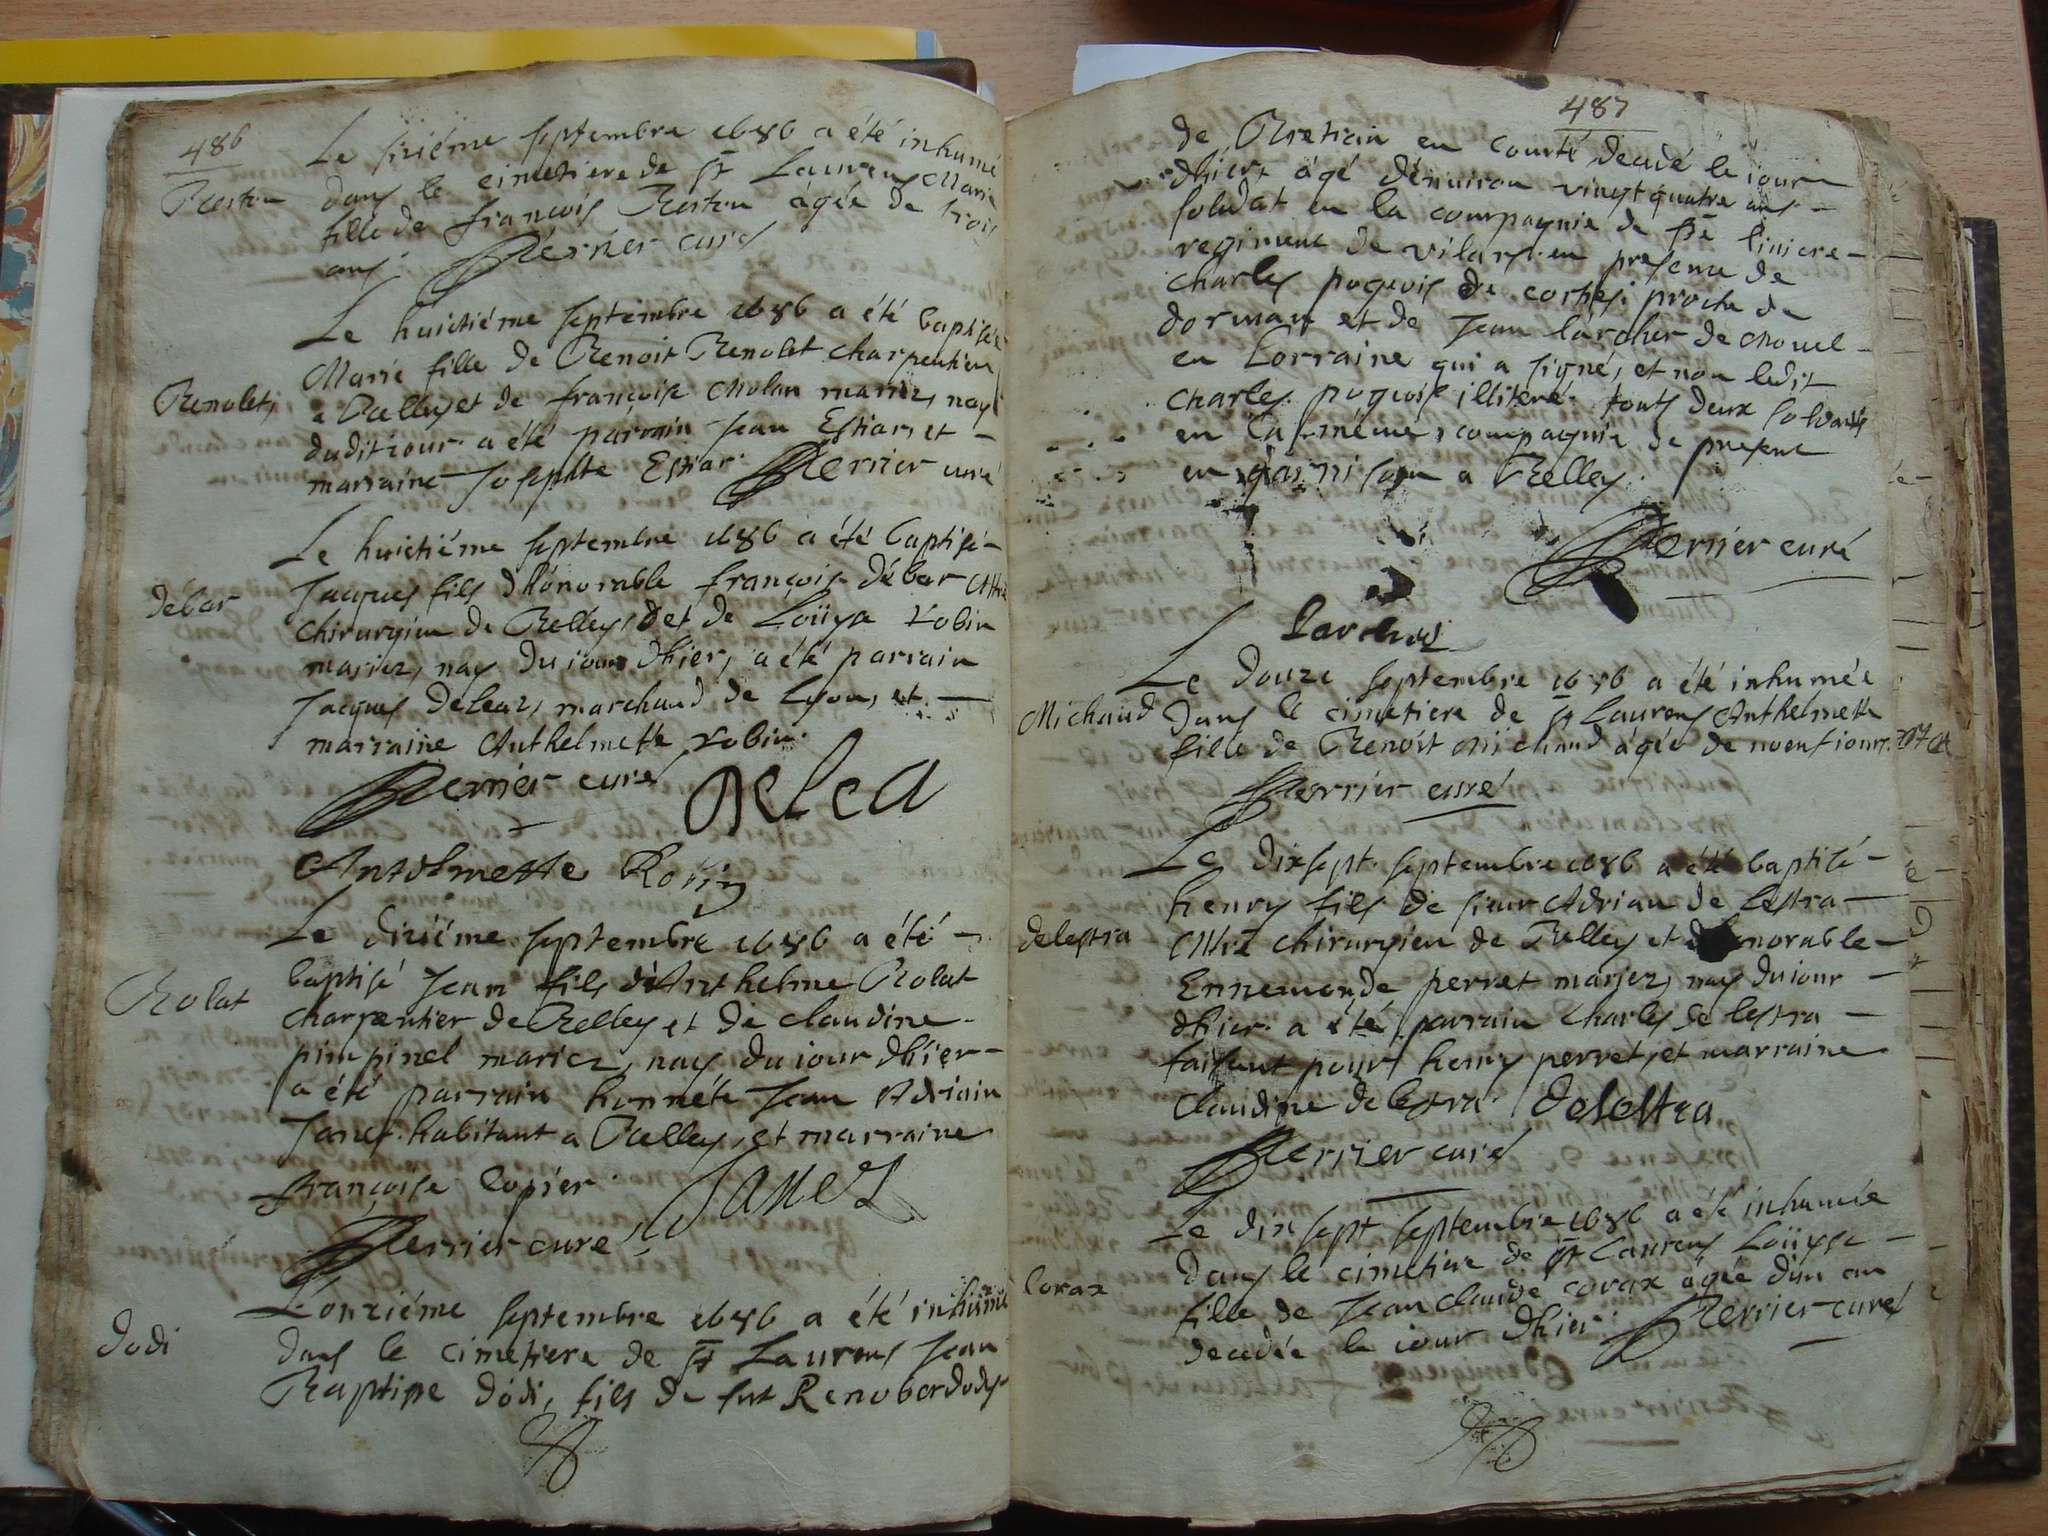 486
Le siziéme septembre 1686 a été inhumé
dans le cimetiere de st Laurens Marie
fille de françois Berton ágée de trois
ans. Perrier curé
Le huictiéme septembre 1686 a été baptisée
Marie fille de Benoit Benolet charpentier
a Belley et de françoise Molan mariez, nay
Benolet,
dudit iour a été parrain Jean Estiar, et -
marraine Josephte Estiar. Perrier curé
Le huictiéme septembre 1686 a été baptisé -
Jacques fils dhonorable françois débar Mtre
debar
chirurgien de Belley, et de Loüyse robin
mariez, nay du iour dhier, a été parrain
Jacques Deleaz, marchand de Lyon, et -
marraine Anthelmette robin.
Perrier curé Delea
Antelmette Robin
Le diziéme septembre 1686 a été -
baptisé Jean fils dAnthelme Bolat
Bolat
charpentier de Belley et de claudine
pinpinel mariez, nay du iour dhier -
a été parrain honnéte Jean Adriain
Janet habitant a Belley, et marraine
françoise Copier. Janet
Perrier curé
L'onziéme septembre 1686 a été inhumé
dodi
dans le cimetiere de st Laurens Jean
Baptiste dódi, fils de fut
487
en comté decedé le iour
dhier, ágé dénuiron vingt quatre ans -
soldat en la compagnie de
regiment de vilars en presence de
charles pogeois de proche de
dorman et de Jean lárcher de
en Lorraine qui a signé, et non ledit
charles pogeois illiteré. touts deux soldats
en la méme, compagnie de present
en garnison a Belley.
Perrier curé
Larcher
Le douze septembre 1686 a été inhumée
Michaud
dans le cimetiere de st Laurens Anthelmette
fille de Benoit Michaud ágée de noeuf iours.
Perrier curé
Le dixsept septembre 1686 a été baptisé -
henry fils de sieur Adrian de lestra -
delestra
Mtre chirurgien de Belley et dhonorable -
Ennemonde perret mariez, nay du iour -
dhier. a été parrain Charles de lestra -
faisant pour henry perret, et marraine
Claudine de lestra. delestra
Perrier curé
Le dixsept septembre 1686 a été inhumée
dans le cimetiere de st Laurens Loüyse -
corax
fille de Jean claude corax ágée d'un an
decedée le iour dhier. Perrier curé